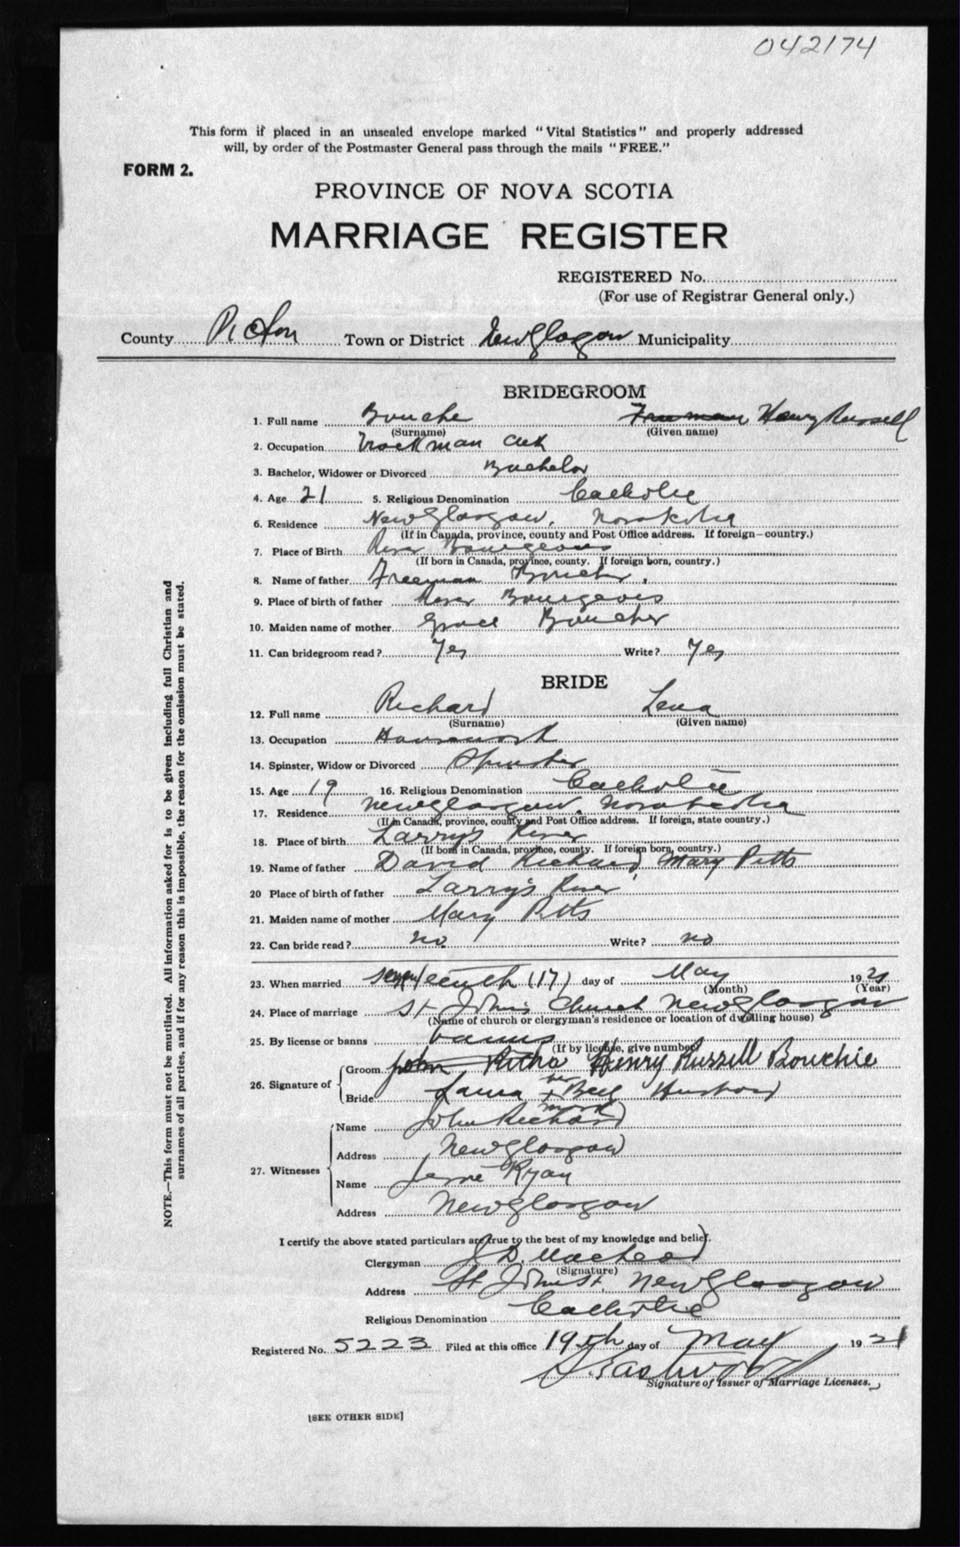 042174
This form if placed in an unsealed envelope marked "Vital Statistics" and properly addressed
will, by order of the Postmaster General pass through the mails "FREE."
FORM 2.
PROVINCE OF NOVA SCOTIA
MARRIAGE REGISTER
REGISTERED No.
(For use of Registrar General only.)
County Pictou Town or District New Glasgow Municipality
BRIDEGROOM
1. Full name Bouche Freeman Henry Russell
(Surname) (Given name)
2. Occupation
3. Bachelor, Widower or Divorced Bachelor
4. Age 21 5. Religious Denomination Catholic
6. Residence New Glasgow, Nova Scotia
(If in Canada, province, county and Post Office address. If foreign—country.)
7. Place of Birth River Bourgeois
(If born in Canada, province, county. If foreign born, country.)
8. Name of father Freeman Boucher
9. Place of birth of father River Bourgeois
10. Maiden name of mother Grace Boucher
11. Can bridegroom read? Yes Write? Yes
BRIDE
12. Full name Richard Lena
(Surname) (Given name)
13. Occupation Housework
14. Spinster, Widow or Divorced Spinster
15. Age 19 16. Religious Denomination Catholic
17. Residence New Glasgow, Nova Scotia
(If in Canada, province, county and Post Office address. If foreign, state country.)
18. Place of birth Larry's River
(If born in Canada, province, county. If foreign born, country.)
19. Name of father David Richard, Mary Pitts
20 Place of birth of father Larry's River
21. Maiden name of mother Mary Pitts
22. Can bride read? no Write? no
23. When married seventeenth (17) day of May 1921
(Month) (Year)
24. Place of marriage St John's Church New Glasgow
(Name of church or clergyman's residence or location of dwelling house)
25. By license or banns banns
(If by license, give number)
26. Signature of
Groom Henry Russell Bouchie
Bride her x mark
27. Witnesses
Name John Richard
Address New Glasgow
Name Ryan
Address New Glasgow
I certify the above stated particulars are true to the best of my knowledge and belief.
Clergyman J D. MacLeod
(Signature)
Address St John St. New Glasgow
Religious Denomination Catholic
Registered No. 5223 Filed at this office 19th day of May 1921
Signature of Issuer of Marriage Licenses.
[SEE OTHER SIDE]
NOTE.—This form must not be mutilated. All information asked for is to be given including full Christian and
surnames of all parties, and if for any reason this is impossible, the reason for the omission must be stated.